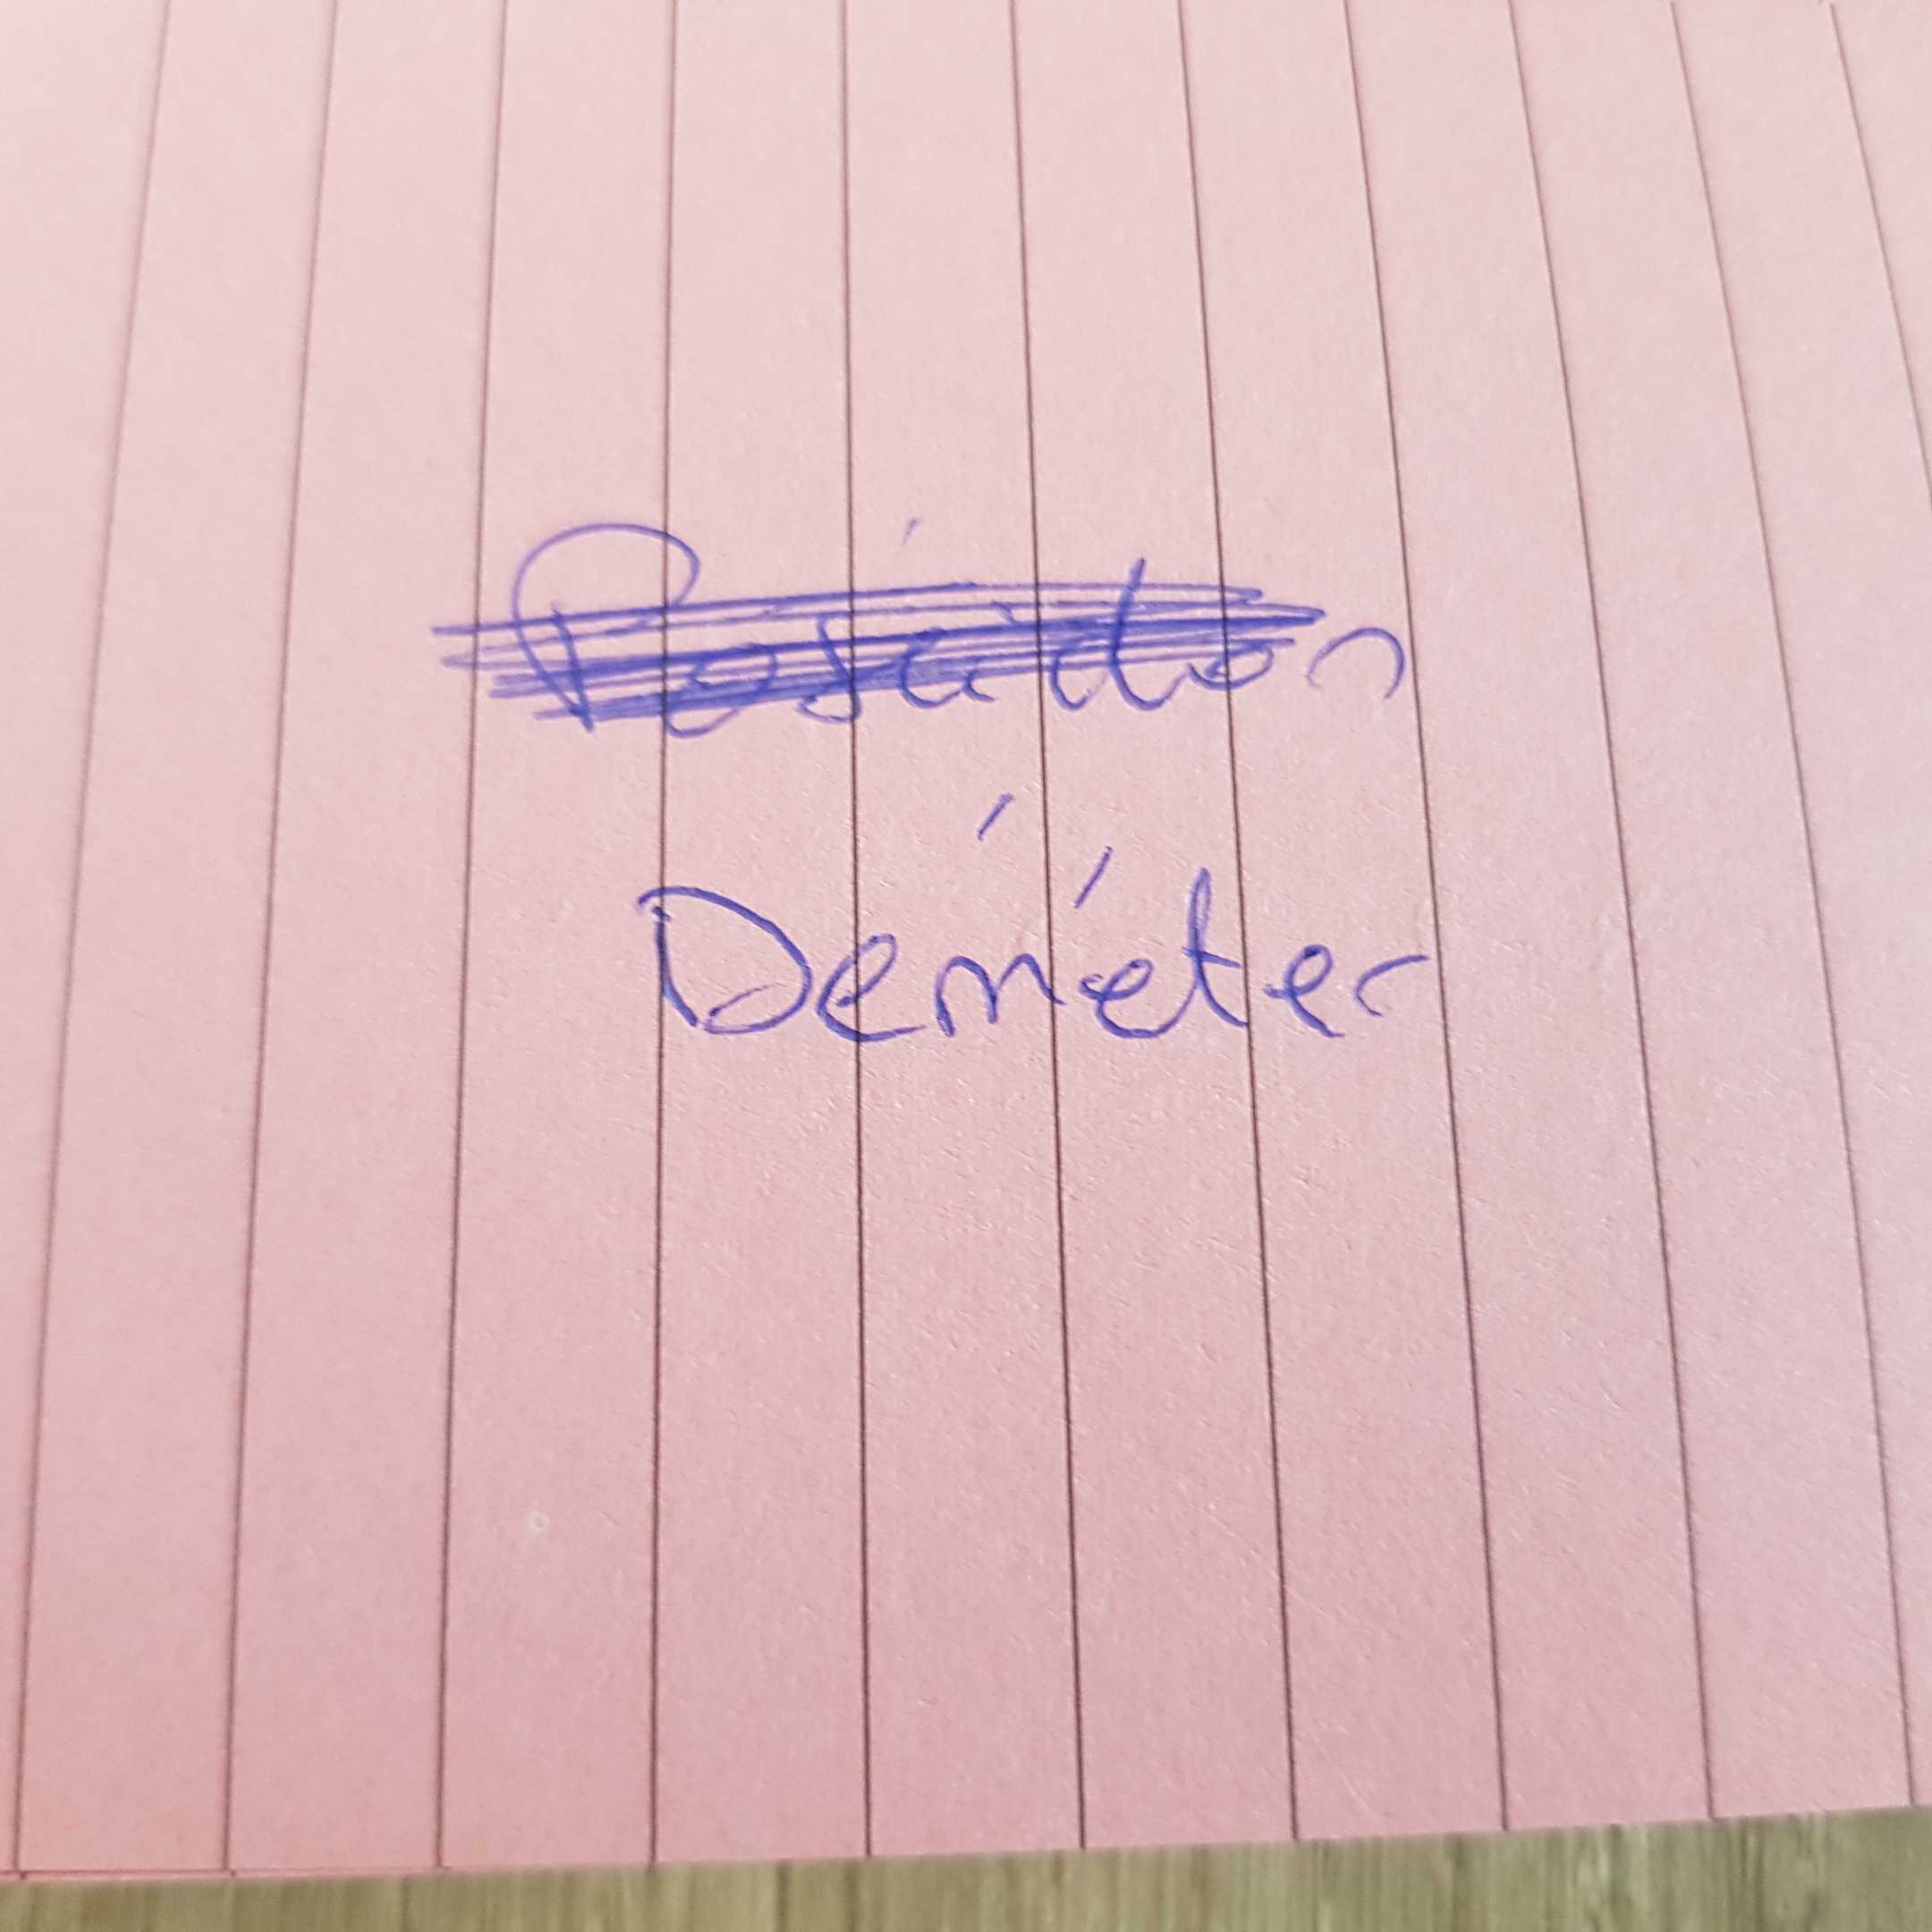 Poséidon
Déméter